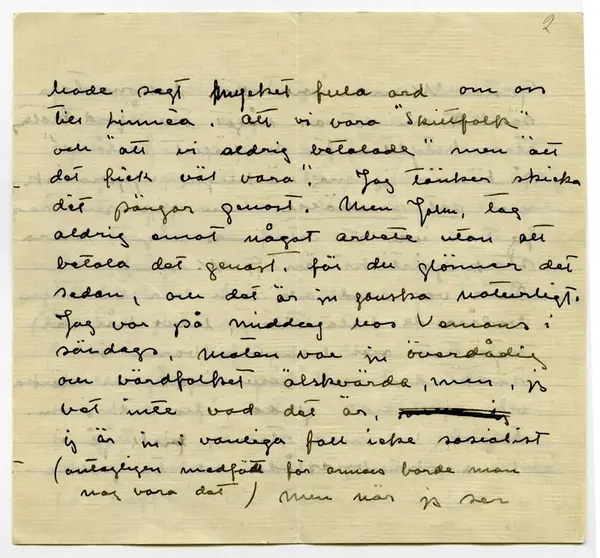 2
hade sagt mycket fula ord om oss
till Linnéa. Att vi vara "Skitfolk"
och "att vi aldrig betalade" men "att
det fick väl vara". Jag tänker skicka
det pängar genast. Men John, tag
aldrig emot något arbete utan att
betala det genast, för du glömmer det
sedan, och det är ju ganska naturligt.
Jag var på middag hos Vennons i
söndags, maten var ju överdådig
och värdfolket älskvärda, men, jg
vet inte vad det är,
jg är ju i vanliga fall icke sosialist
(antagligen medfött för annars borde man
nog vara det) men när jg ser